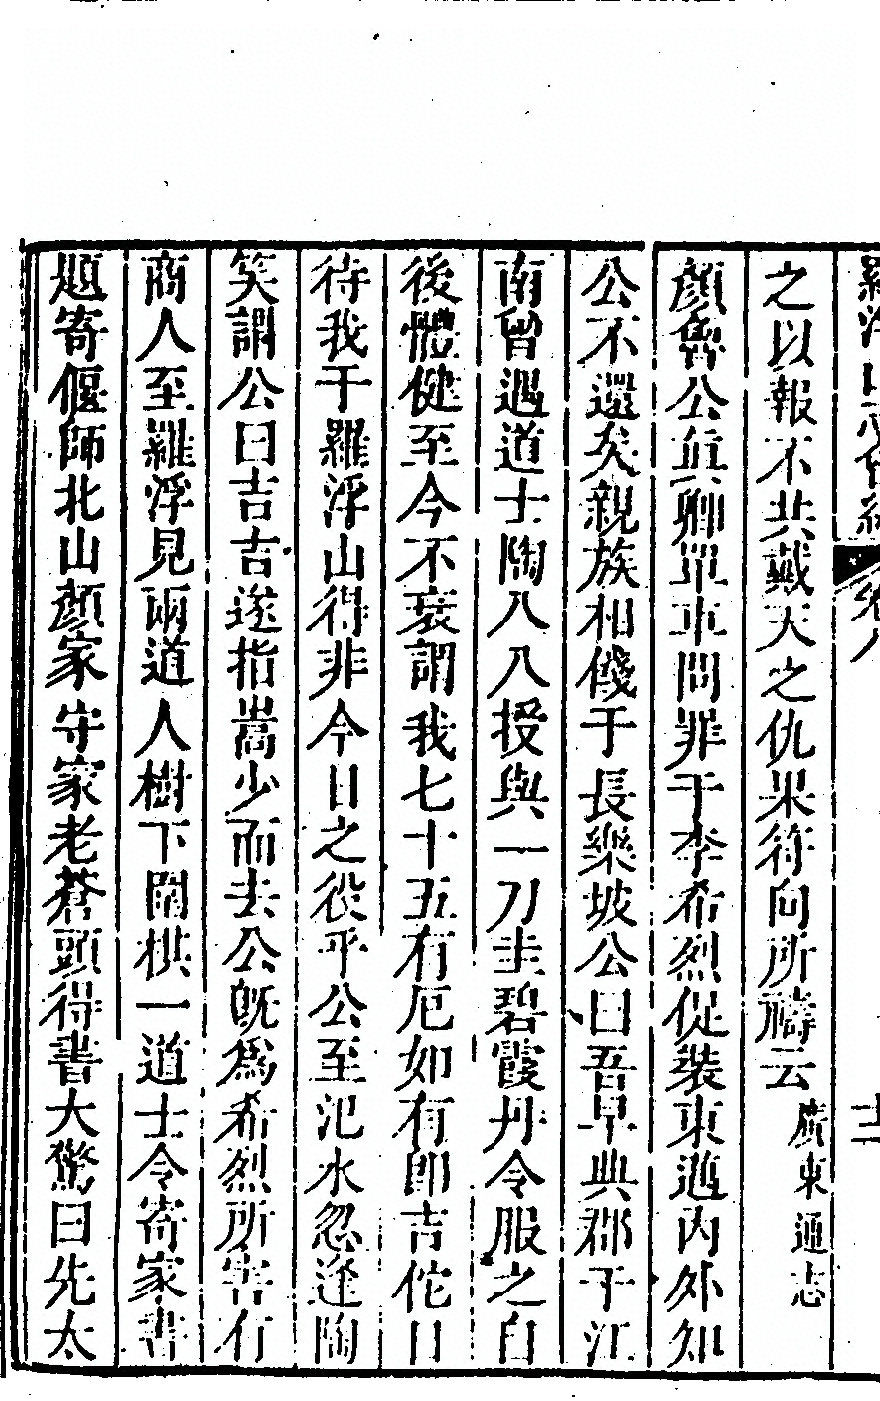 羅浮山志會編 卷八 十二
之以報不共戴天之仇果符向所禱云 廣東通志
顏魯公真卿單車問罪于李希烈促裝東邁內外知
公不還矣親族相餞于長樂坡公曰吾早典郡于江
南曾遇道士陶八八授與一刀圭碧霞丹令服之自
後體健至今不衰謂我七十五有厄如有郎吉佗日
待我于羅浮山得非今日之役乎公至汜水忽逢陶
笑謂公曰吉吉遂指嵩少而去公旣爲希烈所害有
商人至羅浮見兩道人樹下圍棋一道士令寄家書
題寄偃師北山顏家守冢老蒼頭得書大驚曰先太